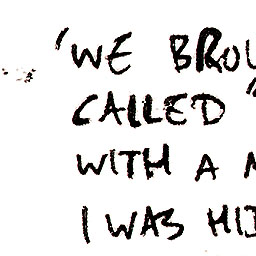 'WE BROU
CALLED "
WITH A
I WAS HID